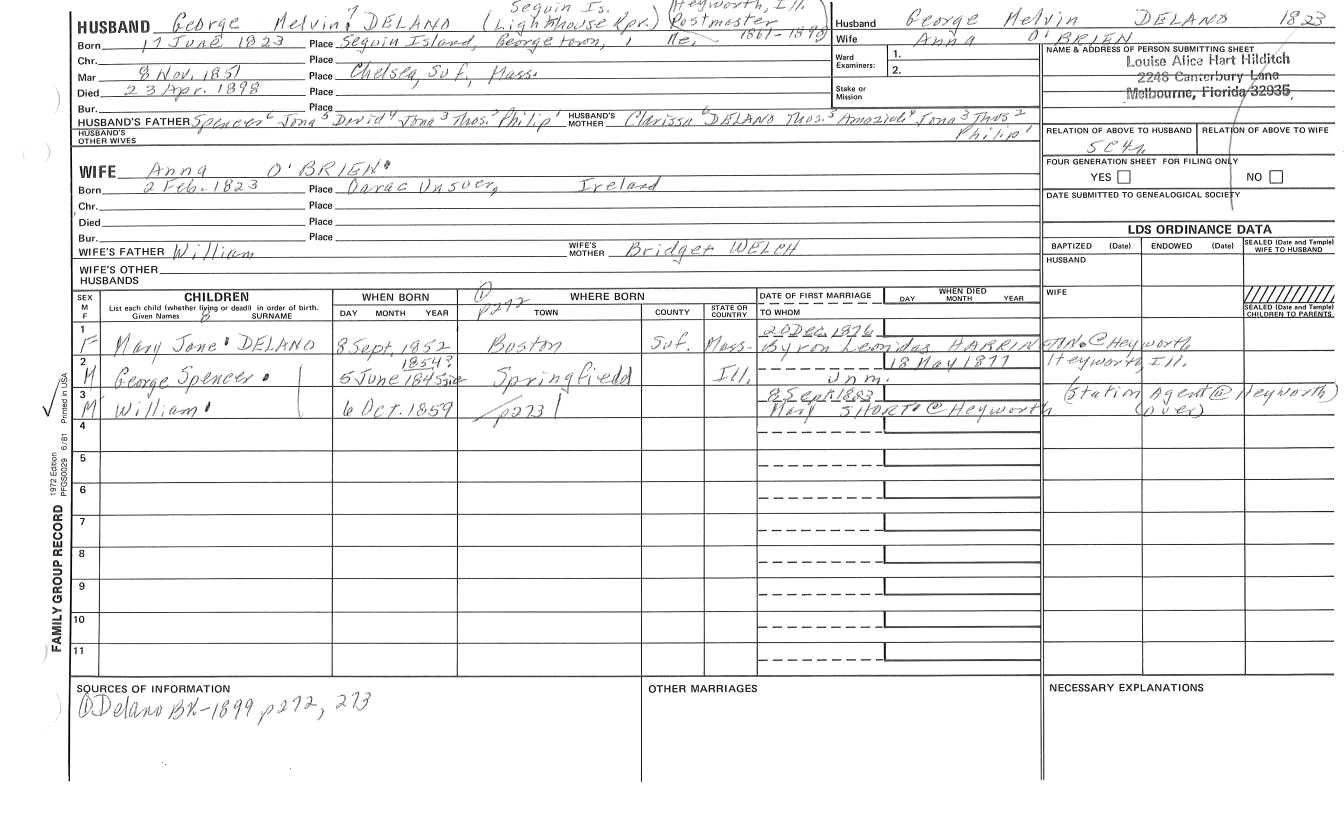 HUSBAND George Melvin 7 DELANO (Lighthouse Kpr.) Postmaster
Seguin Is. Heyworth, Ill.
1861-1898)
Born 17 June 1823 Place Seguin Island, Georgetown, Me.
Chr. Place
Mar 8 Nov. 1851 Place Chelsea, Suf, Mass.
Died 23 Apr. 1898 Place
Bur. Place
HUSBAND'S FATHER Spencer 6 Jona 5 David 4 Jona 3 Thos. 2 Philip 1 HUSBAND'S MOTHER Clarissa 6 DELANO Thos. 5 Amaziah 4 Jona 3 Thos 2
Philip 1
HUSBAND'S OTHER WIVES
Husband George Melvin DELANO 1823
Wife Anna O'BRIEN
Ward Examiners: 1.
2.
Stake or Mission
NAME & ADDRESS OF PERSON SUBMITTING SHEET
Louise Alice Hart Hilditch
2248 Canterbury Lane
Melbourne, Florida 32935
RELATION OF ABOVE TO HUSBAND RELATION OF ABOVE TO WIFE
5C4R
FOUR GENERATION SHEET FOR FILING ONLY
YES NO
DATE SUBMITTED TO GENEALOGICAL SOCIETY
LDS ORDINANCE DATA
BAPTIZED (Date) ENDOWED (Date) SEALED (Date and Temple) WIFE TO HUSBAND
HUSBAND
WIFE
SEALED (Date and Temple) CHILDREN TO PARENTS
WIFE Anna O'BRIEN
Born 2 Feb. 1823 Place Ireland
Chr. Place
Died Place
Bur. Place
WIFE'S FATHER William WIFE'S MOTHER Bridget WELCH
WIFE'S OTHER HUSBANDS
SEX M F
CHILDREN
List each child (whether living or dead) in order of birth.
Given Names 8 SURNAME
WHEN BORN
DAY MONTH YEAR
① p272
WHERE BORN
TOWN COUNTY STATE OR COUNTRY
DATE OF FIRST MARRIAGE
TO WHOM
WHEN DIED
DAY MONTH YEAR
20 Dec. 1876
1 F Mary Jane DELANO 8 Sept. 1852 Boston Suf. Mass. Byron Leonidas HARRINGTIN @ Heyworth
1854? 18 May 1877 Heyworth, Ill.
2 M George Spencer 5 June 1845 sic Springfield Ill. Unm.
8 Sept 1883 (Station Agent @ Heyworth)
3 M William 6 Oct. 1859 p273 Mary SHORT @ Heyworth (over)
4
5
6
7
8
9
10
11
SOURCES OF INFORMATION
① Delano BK-1899 p272, 273
OTHER MARRIAGES
NECESSARY EXPLANATIONS
FAMILY GROUP RECORD
1972 Edition
PFGS0029 6/81 Printed in USA